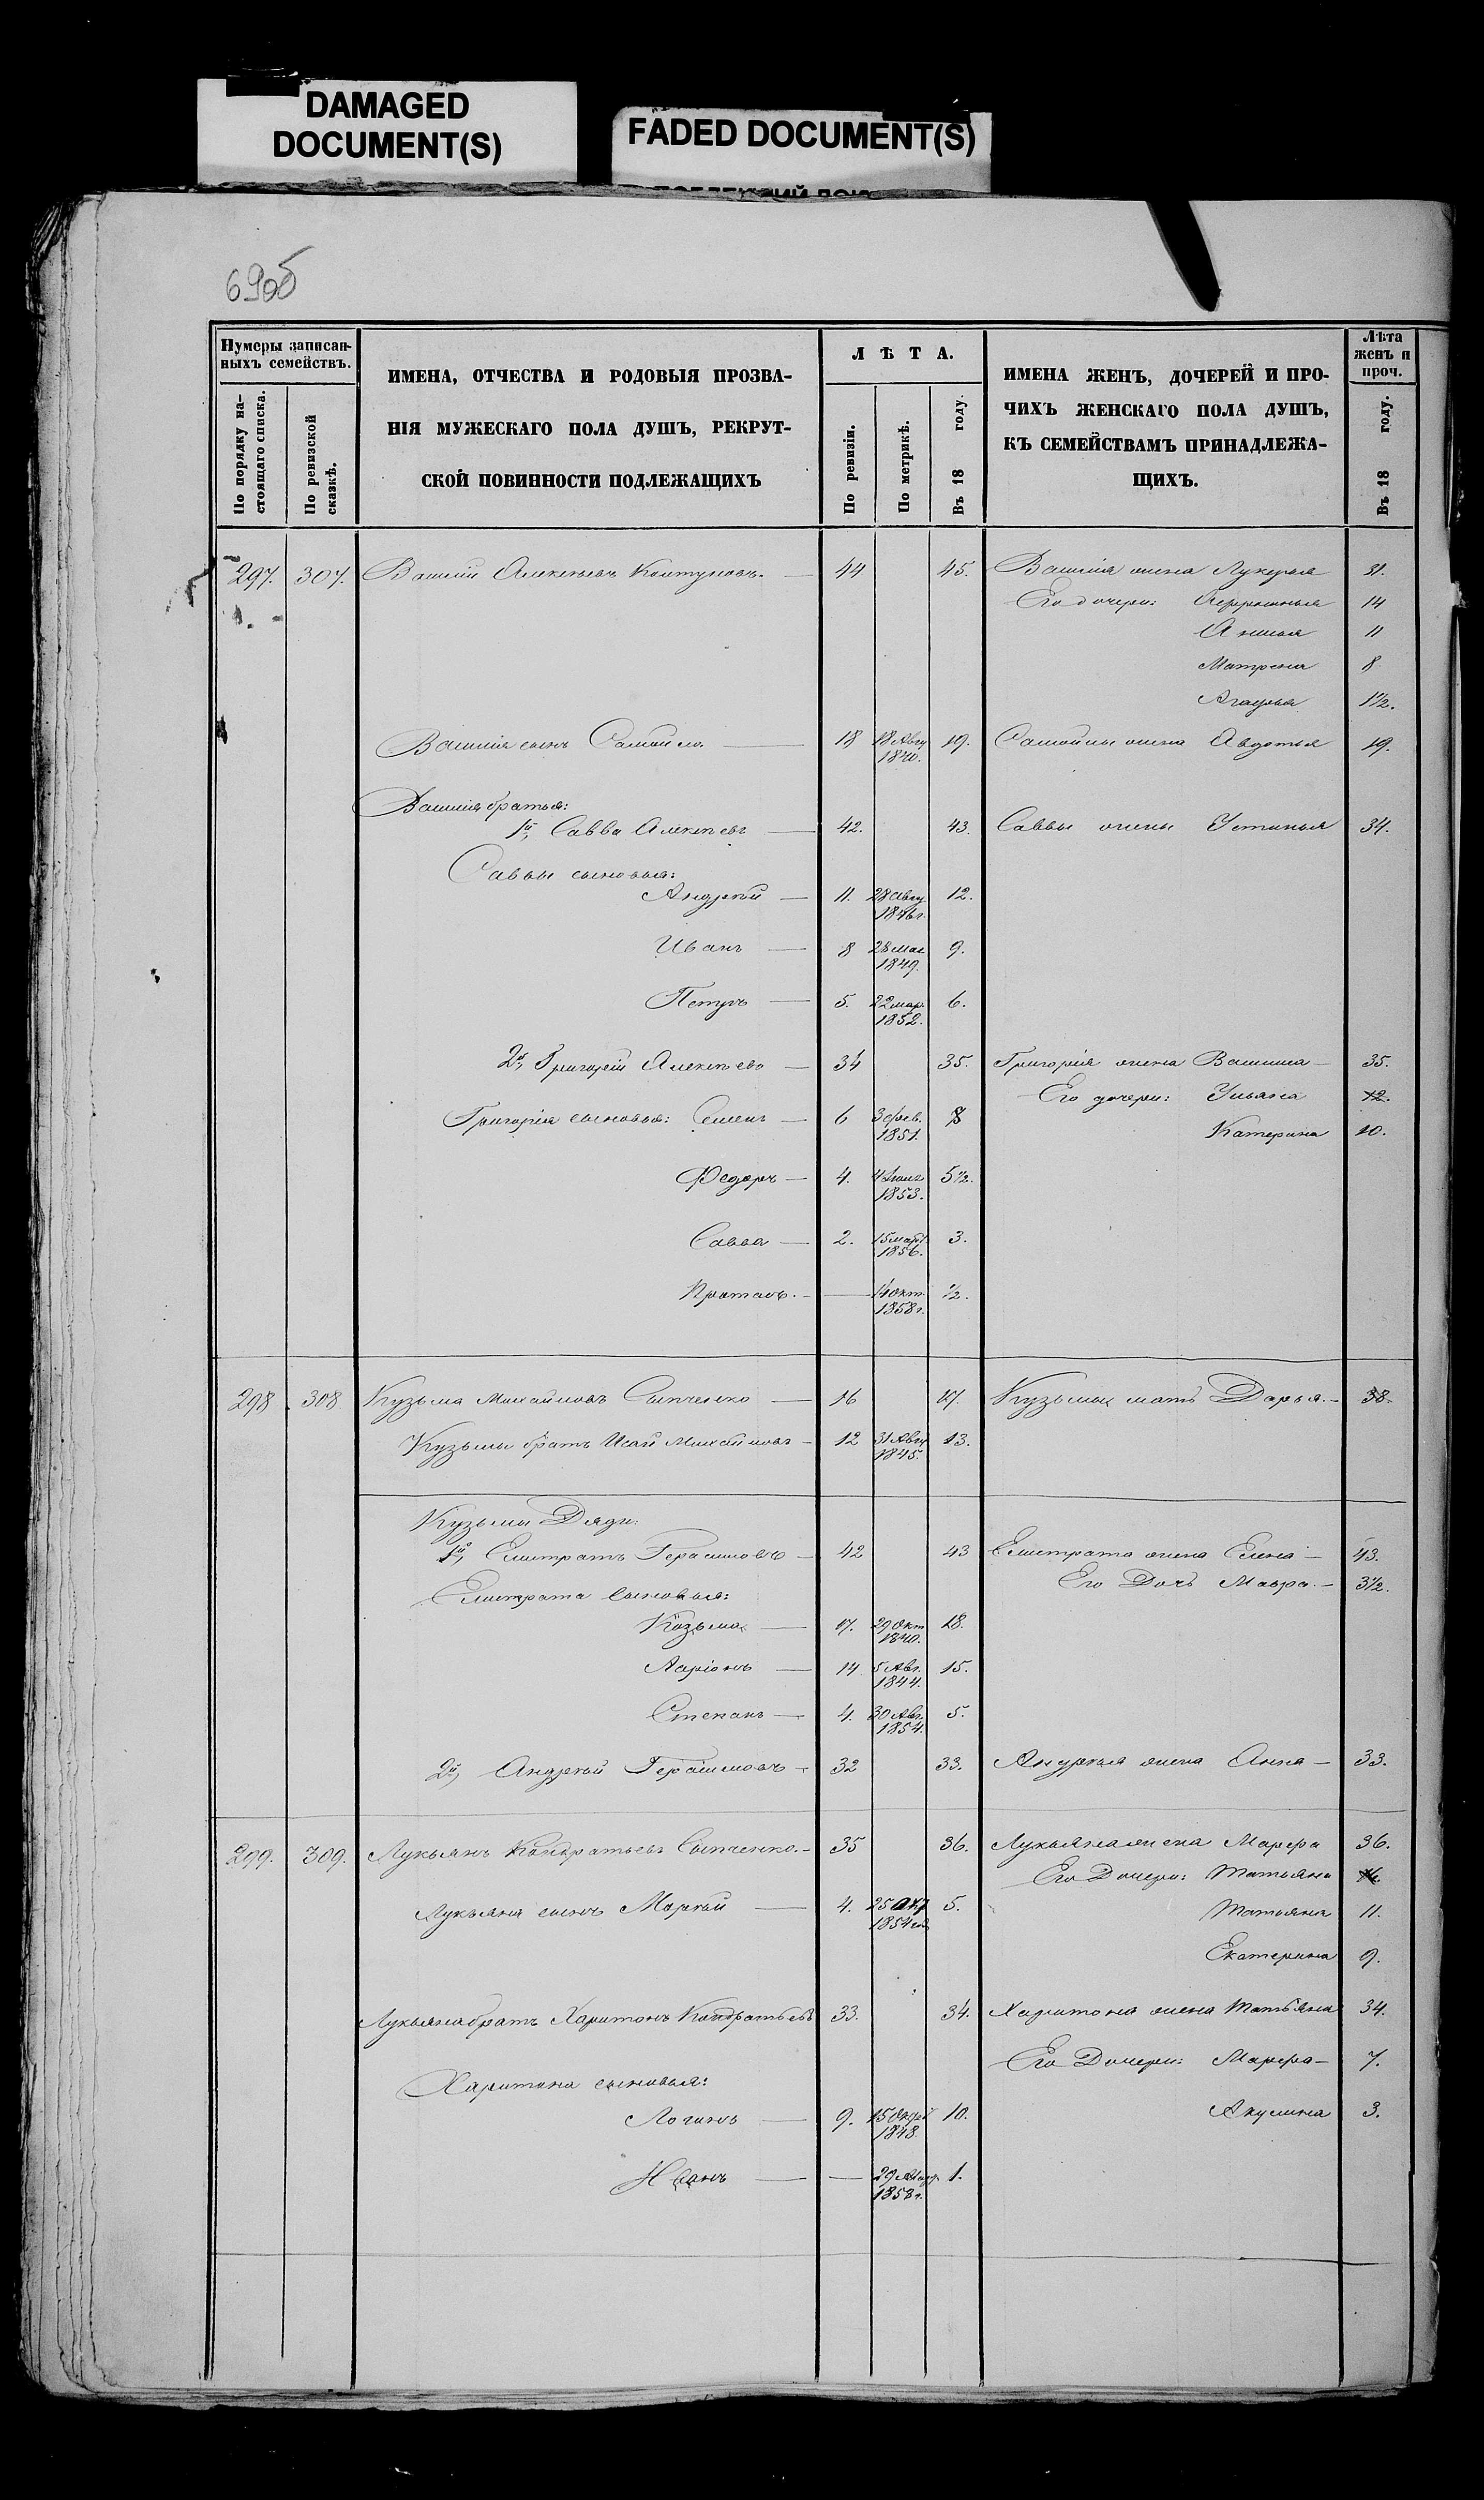 DAMAGED
DOCUMENT(S)
FADED DOCUMENT(S)
690б
Нумеры записан-
ныхъ семействъ.
По порядку на-
стоящаго списка.
По ревизской
сказкѣ.
ИМЕНА, ОТЧЕСТВА И РОДОВЫЯ ПРОЗВА-
НІЯ МУЖЕСКАГО ПОЛА ДУШЪ, РЕКРУТ-
СКОЙ ПОВИННОСТИ ПОДЛЕЖАЩИХЪ
ЛѢТА.
По ревизіи.
По метрикѣ.
Въ 18 году.
ИМЕНА ЖЕНЪ, ДОЧЕРЕЙ И ПРО-
ЧИХЪ ЖЕНСКАГО ПОЛА ДУШЪ,
КЪ СЕМЕЙСТВАМЪ ПРИНАДЛЕЖА-
ЩИХЪ.
Лѣта
женъ и
проч.
Въ 18 году.
297. 307. Василій Алексѣевъ — 44 45. Василія жена Лукерья 31.
Его дочери: 14
11
Матрена 8
Агафья 1½.
Василія сынъ Самойло — 18 18 Авгу 1840. 19. Самойлы жена Авдотья 19.
Василія братья:
1й, Савва Алексѣевъ — 42. 43. Саввы жена Устинья 34.
Саввы сыновья:
Андрей — 11. 28 Авгу. 1846 г. 12.
Иванъ — 8 28 мая 1849. 9.
Петръ — 5. 22 мар. 1852. 6.
2й, Григорій Алексѣевъ — 34 35. Григорія жена Василиса — 35.
Его дочери: Ульяна 12.
Григорія сыновья: Семенъ — 6 3 фев. 1851. Катерина 10.
Федоръ — 4. 1853. 5½.
Савва — 2. 15 март 1856. 3.
Протасъ. — 14 окт. 1858 г. ½.
298. 308. Кузьма Михайловъ Сыпченко — 16 17. Кузьмы мать Дарья. — 38.
Кузьмы братъ Исай Михайловъ — 12 31 Авгу 1845. 13.
Кузьмы Дяди:
1й, Елистратъ Герасимовъ — 42 43 Елистрата жена Елена — 43.
Его Дочь Мавра. — 3½.
Елистрата сыновья:
Козьма — 17. 29 Окт 1840. 18.
Ларіонъ — 14 5 Авг. 1844. 15.
Степанъ — 4. 30 Авг. 1854. 5.
2й, Андрей Герасимовъ — 32 33. Андрея жена Анна — 33.
299. 309. Лукьянъ Кондратьевъ Сыпченко. — 35 36. Лукьяна жена Марфа 36.
Его Дочери: Татьяна
Лукьяна сынъ — 4. 5. Татьяна 11.
Екатерина 9.
Лукьяна братъ Харитонъ Кондратьевъ 33. 34. Харитона жена Татьяна 34.
Его Дочери: Марфа — 7.
Харитона сыновья:
Логинъ — 9. 1848. 10. Акулина 3.
Иванъ — — 29 Мар. 1858 г. 1.